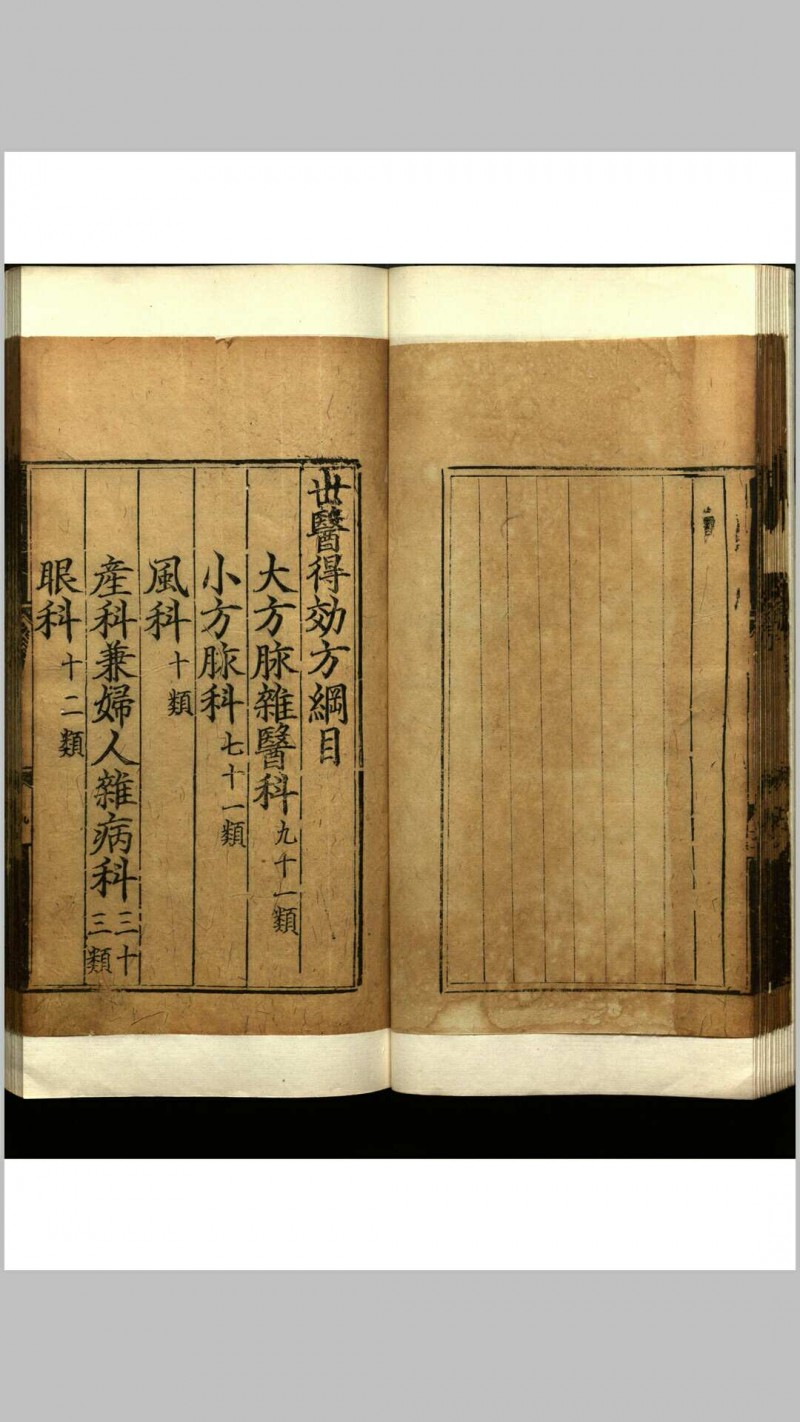 世醫得効方綱目
大方脉雜醫科九十一類
小方脉科七十一類
風科十類
產科兼婦人雜病科三十三類
眼科十二類